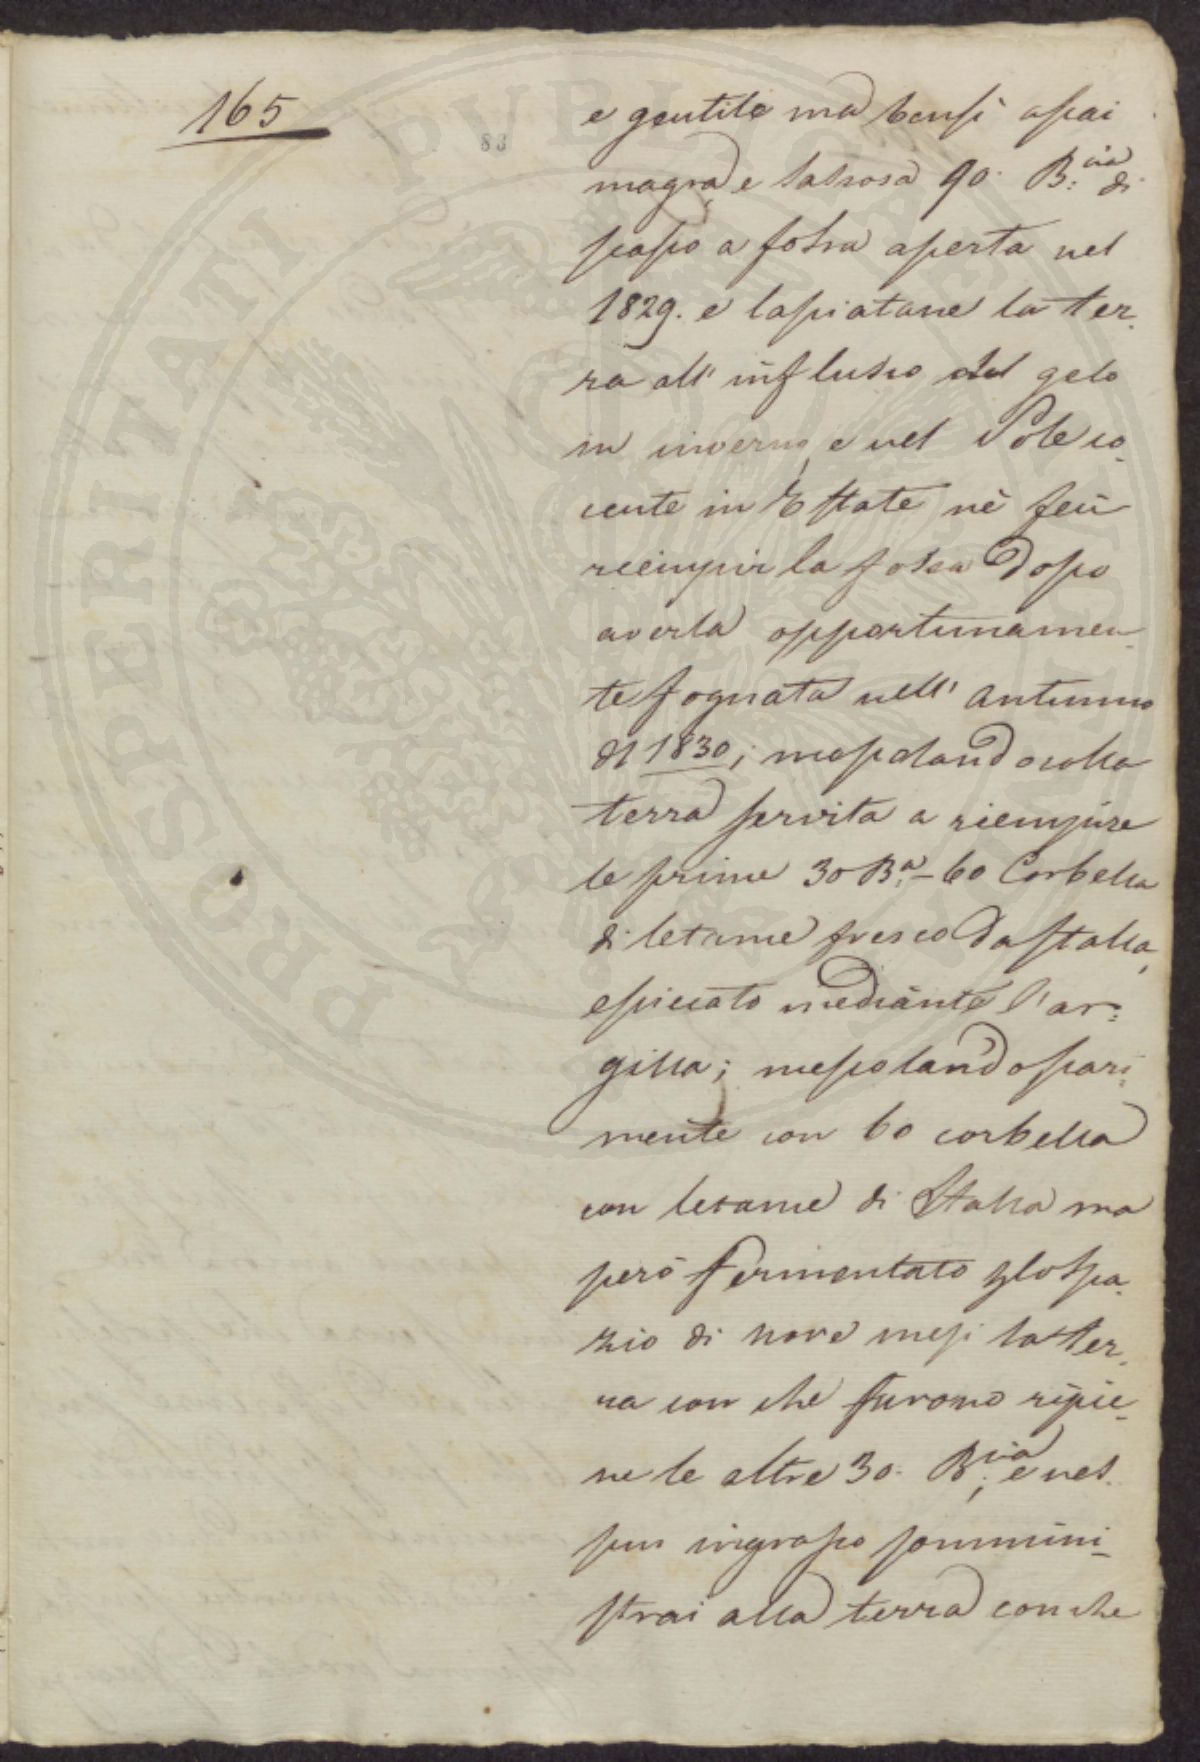 165
83
e gentile ma bensì assai
magra, e sassosa 90. B:cia di
scasso a fossa aperta nel
1829. e lasciatane la ter-
ra all' influsso del gelo
in inverno, e nel Sole co-
cente in Estate nè feci
riempir la fossa dopo
averla opportunamen-
te fognata nell' autunno
del 1830; mescolando colla
terra servita a riempire
le prime 30 B:a - 60 Corbella
di letame fresco da stalla,
e siccato mediante l'ar-
gilla; mescolando pari-
mente con 60 corbella
con letame di Stalla ma
però fermentato per lo spa-
zio di nove mesi la ter-
ra con che furono ripie-
ne le altre 30. B:cia, e nes-
sun ingrasso sommini-
strai alla terra con che
PROSPERITATI PVBLICAE